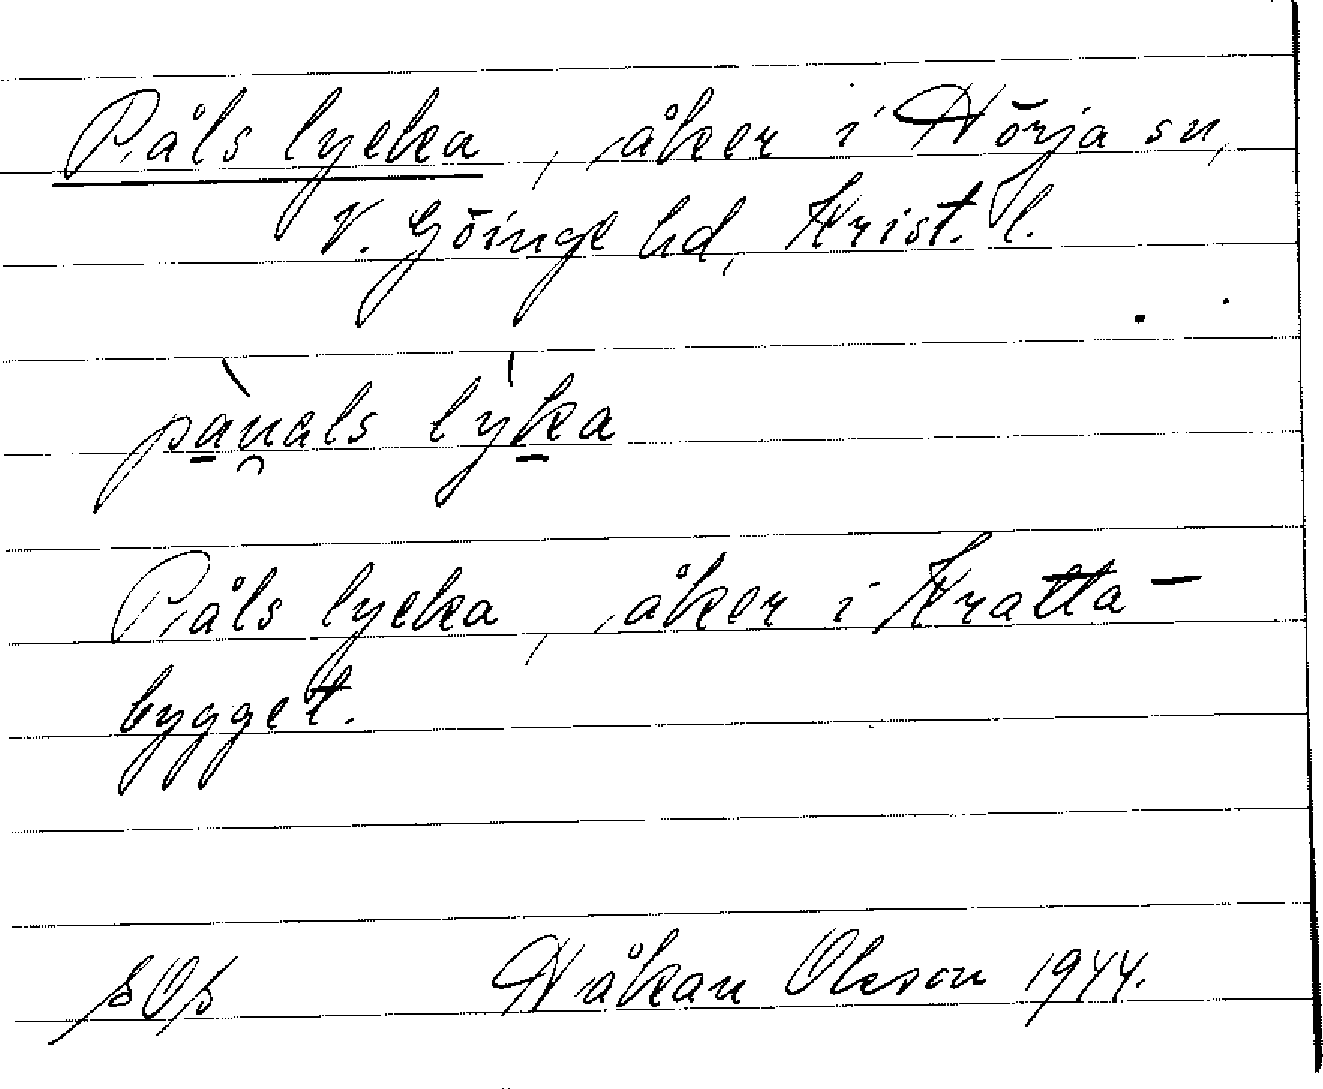 Påls lycka, åker i Hörja sn,
V. Göinge hd, Krist. l.
pàu̯als lyka
Påls lycka, åker i Kratta-
bygget.
Håkan Olsson 1944.